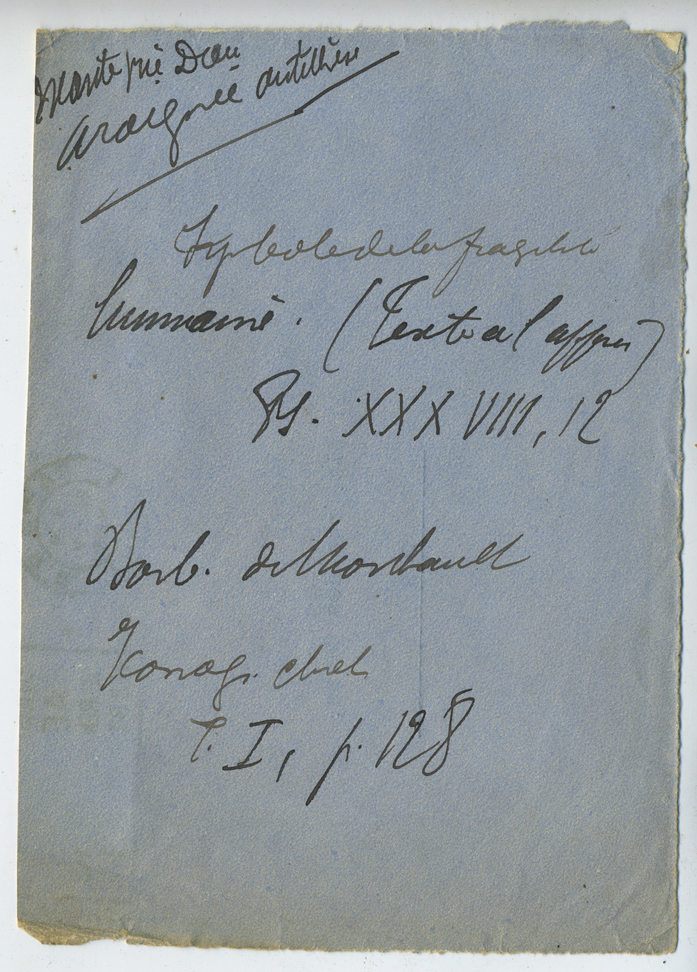 Mante prie Dieu
araignée antillaise
Symbole de la fragilité
humaine. (Texte à l'appui)
Ps. XXXVIII, 12
Barb. de Montault
Iconog. chret
T. I, p. 128